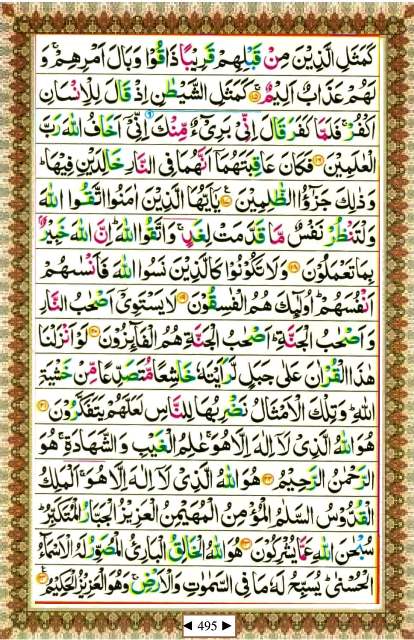 كَمَثَلِ الَّذِيْنَ مِنْ قَبْلِهِمْ قَرِيْبًا ذَاقُوْا وَبَالَ اَمْرِهِمْ ۚ وَ
لَهُمْ عَذَابٌ اَلِيْمٌ ۚ﴿۱۵﴾ كَمَثَلِ الشَّيْطٰنِ اِذْ قَالَ لِلْاِنْسَانِ
اكْفُرْ ۚ فَلَمَّا كَفَرَ قَالَ اِنِّيْ بَرِيْٓءٌ مِّنْكَ اِنِّيْٓ اَخَافُ اللّٰهَ رَبَّ
الْعٰلَمِيْنَ ﴿۱۶﴾ فَكَانَ عَاقِبَتَهُمَاۤ اَنَّهُمَا فِي النَّارِ خَالِدَيْنِ فِيْهَا ؕ
وَذٰلِكَ جَزٰٓؤُا الظّٰلِمِيْنَ ﴿۱۷﴾ يٰۤاَيُّهَا الَّذِيْنَ اٰمَنُوا اتَّقُوا اللّٰهَ
وَلْتَنْظُرْ نَفْسٌ مَّا قَدَّمَتْ لِغَدٍ ۚ وَاتَّقُوا اللّٰهَ ؕ اِنَّ اللّٰهَ خَبِيْرٌۢ
بِمَا تَعْمَلُوْنَ ﴿۱۸﴾ وَلَا تَكُوْنُوْا كَالَّذِيْنَ نَسُوا اللّٰهَ فَاَنْسٰىهُمْ
اَنْفُسَهُمْ ؕ اُولٰٓئِكَ هُمُ الْفٰسِقُوْنَ ﴿۱۹﴾ لَا يَسْتَوِيْۤ اَصْحٰبُ النَّارِ
وَاَصْحٰبُ الْجَنَّةِ ؕ اَصْحٰبُ الْجَنَّةِ هُمُ الْفَآئِزُوْنَ ﴿۲۰﴾ لَوْ اَنْزَلْنَا
هٰذَا الْقُرْاٰنَ عَلٰى جَبَلٍ لَّرَاَيْتَهٗ خَاشِعًا مُّتَصَدِّعًا مِّنْ خَشْيَةِ
اللّٰهِ ؕ وَتِلْكَ الْاَمْثَالُ نَضْرِبُهَا لِلنَّاسِ لَعَلَّهُمْ يَتَفَكَّرُوْنَ ﴿۲۱﴾
هُوَ اللّٰهُ الَّذِيْ لَاۤ اِلٰهَ اِلَّا هُوَ ۚ عٰلِمُ الْغَيْبِ وَالشَّهَادَةِ ۚ هُوَ
الرَّحْمٰنُ الرَّحِيْمُ ﴿۲۲﴾ هُوَ اللّٰهُ الَّذِيْ لَاۤ اِلٰهَ اِلَّا هُوَ ۚ اَلْمَلِكُ
الْقُدُّوْسُ السَّلٰمُ الْمُؤْمِنُ الْمُهَيْمِنُ الْعَزِيْزُ الْجَبَّارُ الْمُتَكَبِّرُ ؕ
سُبْحٰنَ اللّٰهِ عَمَّا يُشْرِكُوْنَ ﴿۲۳﴾ هُوَ اللّٰهُ الْخَالِقُ الْبَارِئُ الْمُصَوِّرُ لَهُ الْاَسْمَآءُ
الْحُسْنٰى ؕ يُسَبِّحُ لَهٗ مَا فِي السَّمٰوٰتِ وَالْاَرْضِ ۚ وَهُوَ الْعَزِيْزُ الْحَكِيْمُ ﴿۲۴﴾
◄ 495 ►